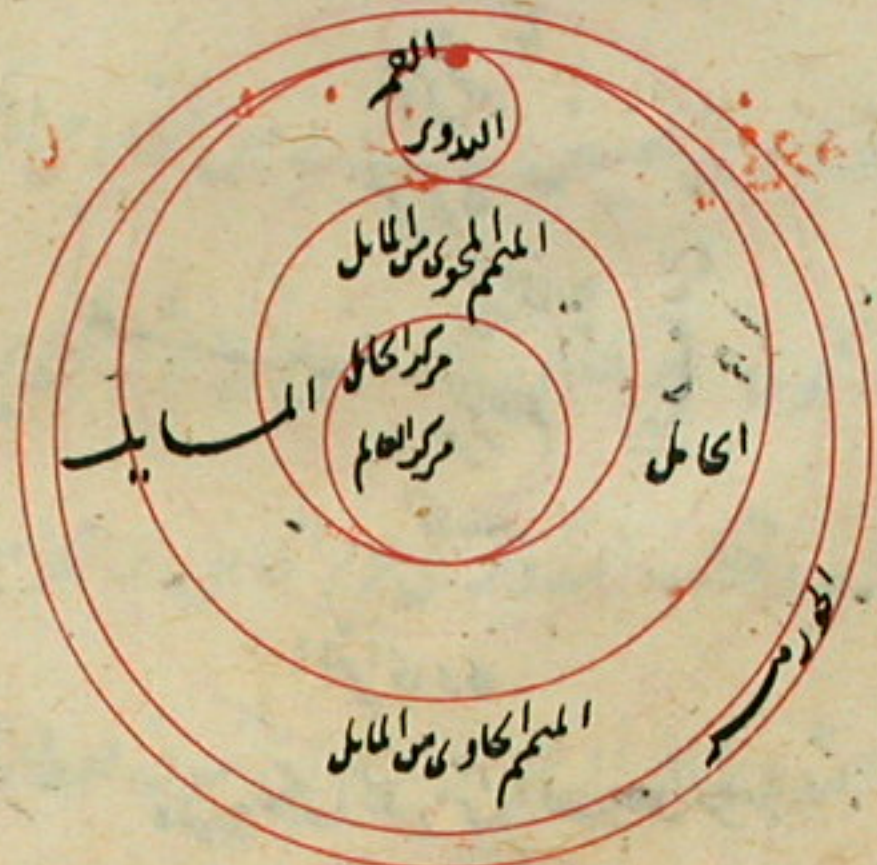 القمر
التدوير
المتمم المحوى من المايل
مركز الحامل
المايل
مركز العالم
الحامل
الجوزهر
المتمم الحاوى من المايل